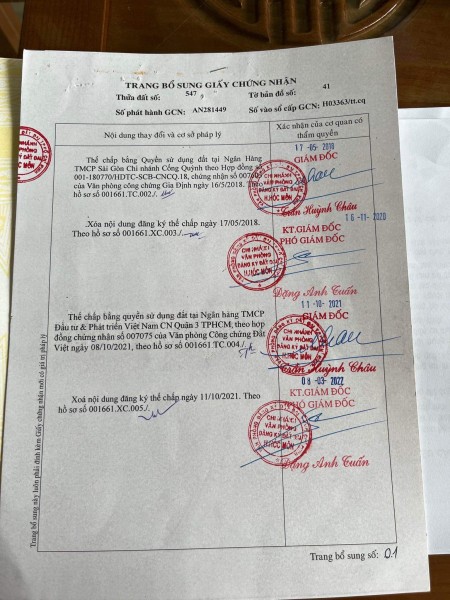 TRANG BỔ SUNG GIẤY CHỨNG NHẬN
Thửa đất số: 547 Tờ bản đồ số: 41
Số phát hành GCN: AN281449 Số vào sổ cấp GCN: H03363/tt.cq
Nội dung thay đổi và cơ sở pháp lý
Xác nhận của cơ quan có
thẩm quyền
Thế chấp bằng Quyền sử dụng đất tại Ngân Hàng
TMCP Sài Gòn Chi nhánh Cống Quỳnh theo Hợp đồng số
001-180770/HDTC-SCB-CNCQ.18, chứng nhận số
của Văn phòng công chứng Gia Định ngày 16/5/2018. Theo
hồ sơ số 001661.TC.002./
GIÁM ĐỐC
CHI NHÁNH
VĂN PHÒNG
ĐĂNG KÝ ĐẤT ĐAI
H.HÓC MÔN
Trần Huỳnh Châu
Xóa nội dung đăng ký thế chấp ngày 17/05/2018.
Theo hồ sơ số 001661.XC.003./
16-11-2020
KT.GIÁM ĐỐC
PHÓ GIÁM ĐỐC
CHI NHÁNH
VĂN PHÒNG
ĐĂNG KÝ ĐẤT ĐAI
H.HÓC MÔN
Đặng Anh Tuấn
Thế chấp bằng quyền sử dụng đất tại Ngân hàng TMCP
Đầu tư & Phát triển Việt Nam CN Quận 3 TPHCM, theo hợp
đồng chứng nhận số 007075 của Văn phòng Công chứng Đất
Việt ngày 08/10/2021, theo hồ sơ số 001661.TC.004./
11-10-2021
GIÁM ĐỐC
CHI NHÁNH
VĂN PHÒNG
ĐĂNG KÝ ĐẤT ĐAI
H.HÓC MÔN
Trần Huỳnh Châu
Xoá nội dung đăng ký thế chấp ngày 11/10/2021. Theo
hồ sơ số 001661.XC.005./
08-03-2022
KT.GIÁM ĐỐC
PHÓ GIÁM ĐỐC
CHI NHÁNH
VĂN PHÒNG
ĐĂNG KÝ ĐẤT ĐAI
H.HÓC MÔN
Đặng Anh Tuấn
Trang bổ sung này luôn phải đính kèm Giấy chứng nhận mới có giá trị pháp lý
Trang bổ sung số: 01